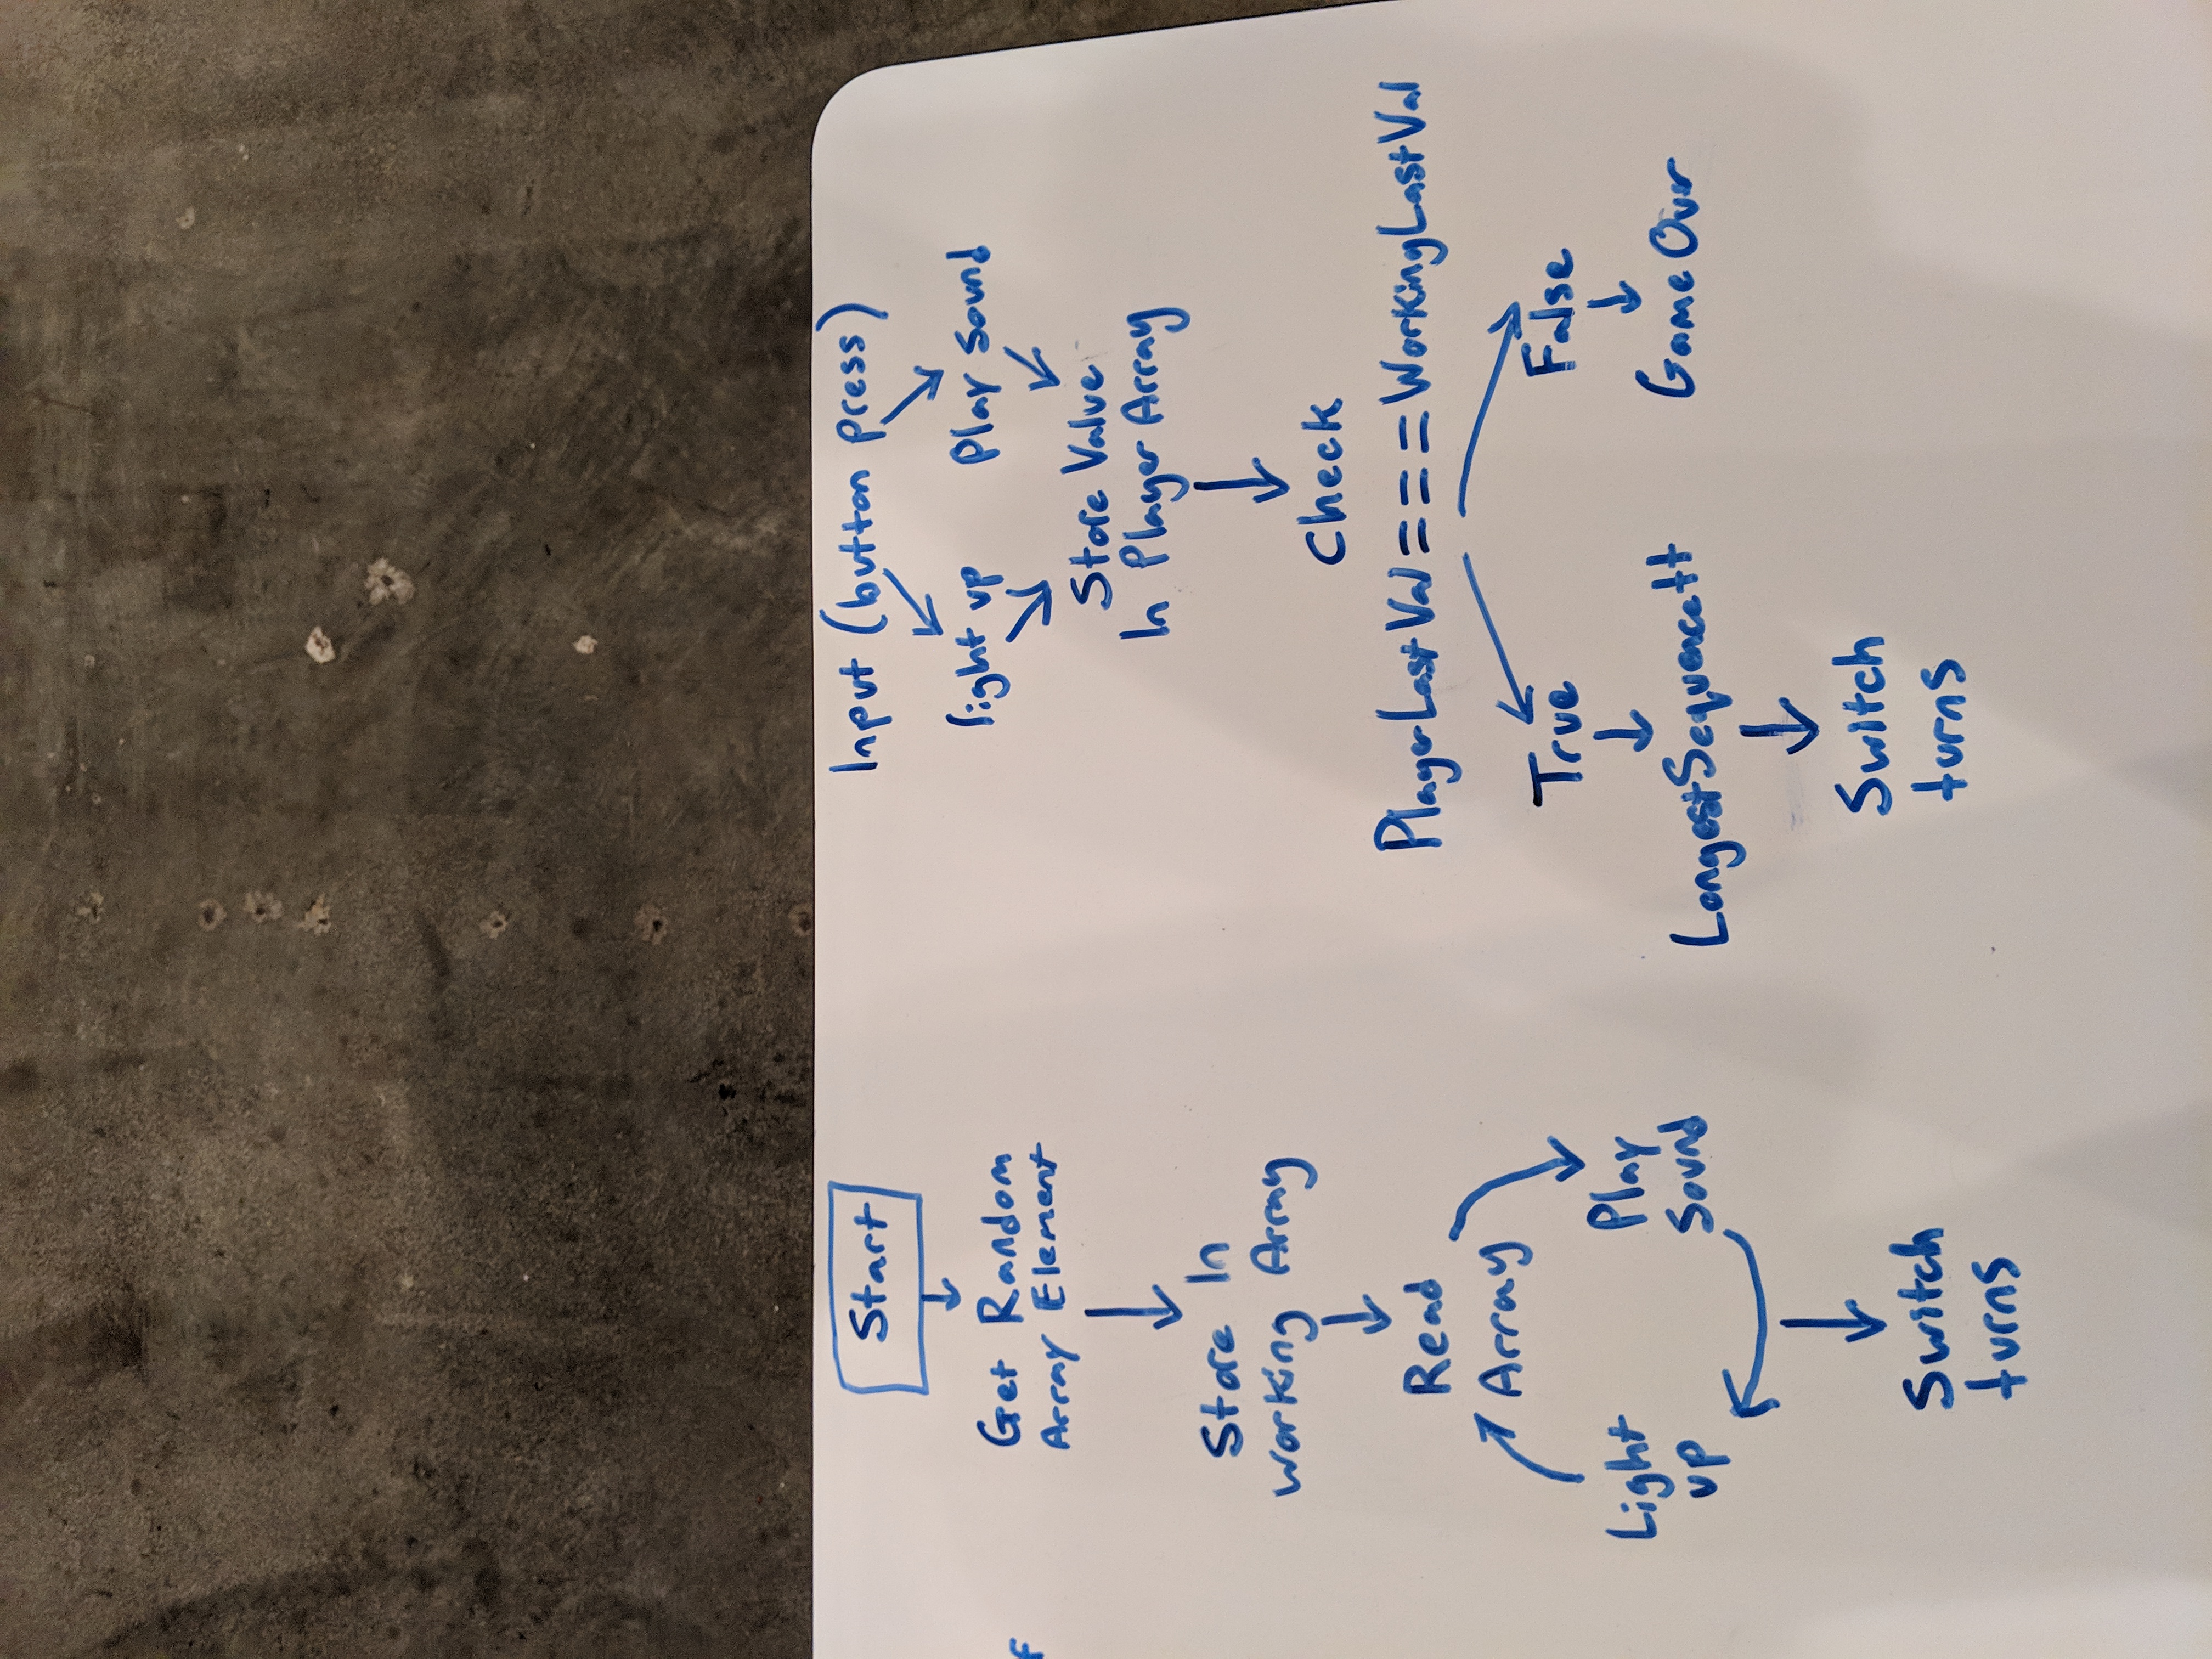 Start
Get Random
Array Element
Store In
Working Array
Read
Array
Play
Sound
Light
up
Switch
turns
Input (button press)
light up
Play Sound
Store Value
In Player Array
Check
PlayerLastVal===WorkingLastVal
True
False
LongestSequence++
Game Over
Switch
turns